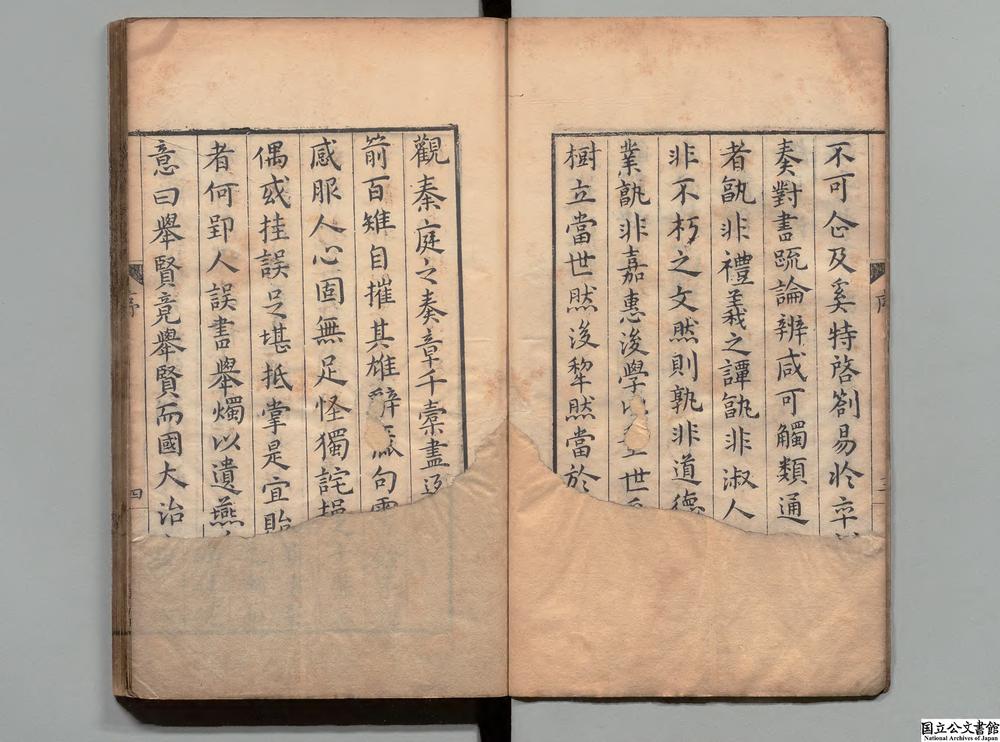 不可仚及奚特啓劄易於卒
奏對書䟽論辨咸可觸類通
者孰非禮義之譚孰非淑人
非不朽之文然則孰非道德
業孰非嘉惠後學 世
樹立當世然後犂然當於
序
觀秦庭之奏章千橐盡
箭百雉自摧其雄辭 句
感服人心固無足怪獨詫
偶或挂誤足堪抵掌是宜貽
者何郢人誤書舉燭以遺燕
意曰舉賢竟舉賢而國大治
序
四
国立公文書館
National Archives of Japan